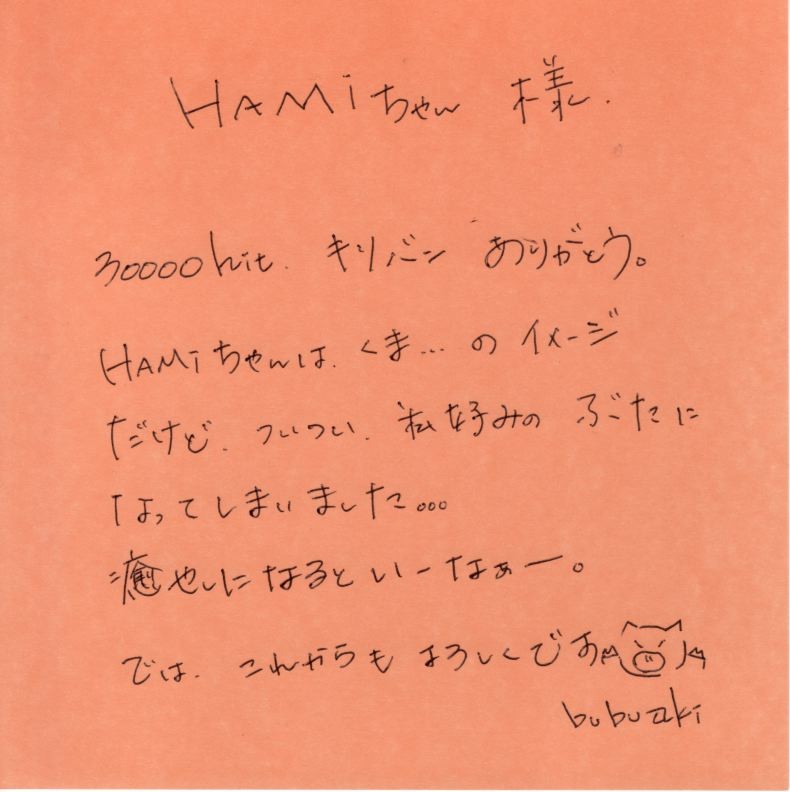 HAMiちゃん 様.
30000hit. キリバン ありがとう。
HAMiちゃんは. くま... の イメージ
だけど. ついつい. 私好みの ぶたに
なってしまいました...
癒やしになるといーなぁー。
では. これからも よろしくです
bubuzaki